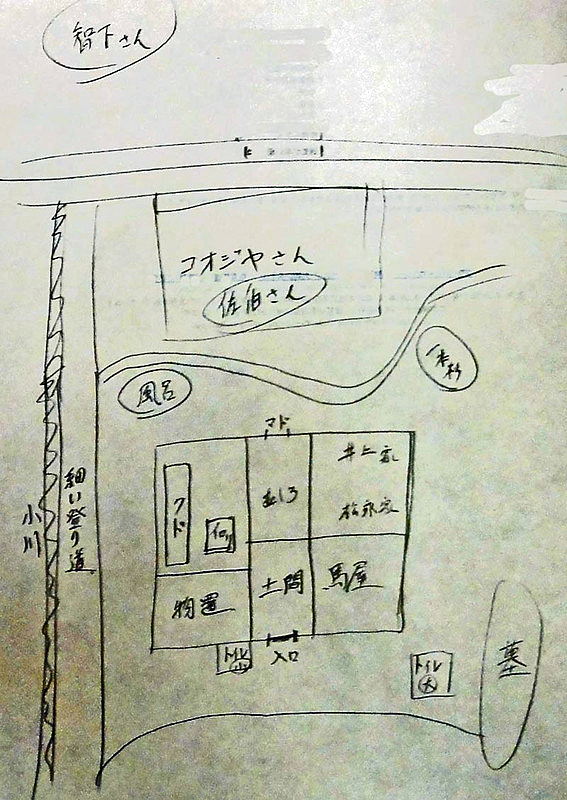 智下さん
コオジヤさん
佐伯さん
一本杉
風呂
マド
井上家
松永家
クド
細い登り道
小川
物置
土間
馬屋
トイレ
小
入口
トイレ
大
墓